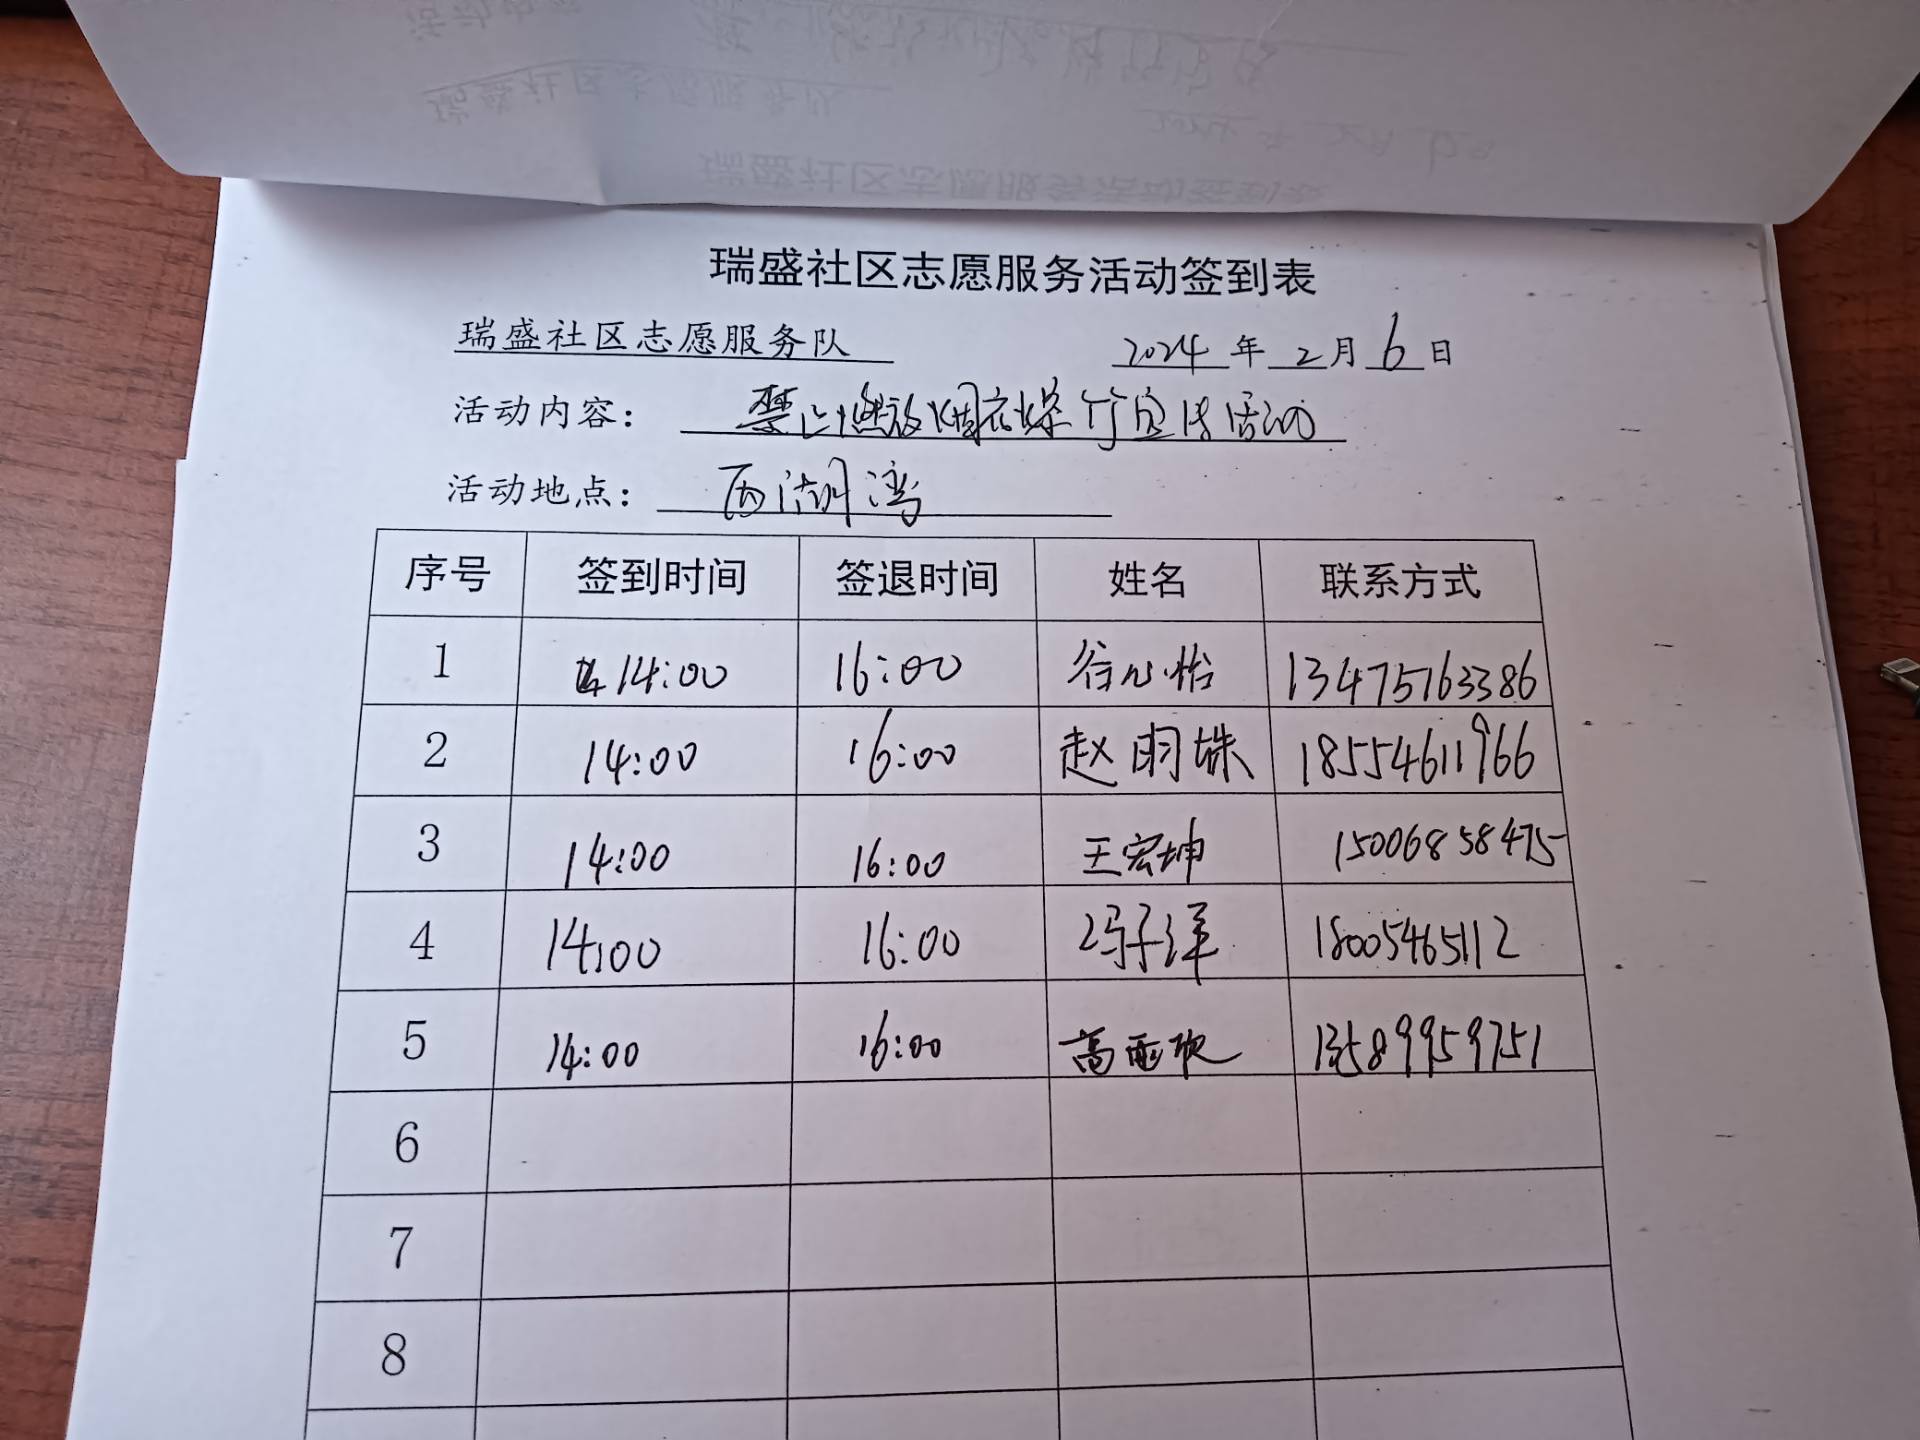 瑞盛社区志愿服务活动签到表
瑞盛社区志愿服务队 2024 年 2 月 6 日
活动内容: 禁止燃放烟花爆竹宣传活动
活动地点: 西湖湾
序号 签到时间 签退时间 姓名 联系方式
1 14:00 16:00 谷心怡 13475163386
2 14:00 16:00 赵明姝 18554611966
3 14:00 16:00 王宏坤 15006858475
4 14:00 16:00 冯子洋 18005465112
5 14:00 16:00 高雨欣 13589959751
6
7
8